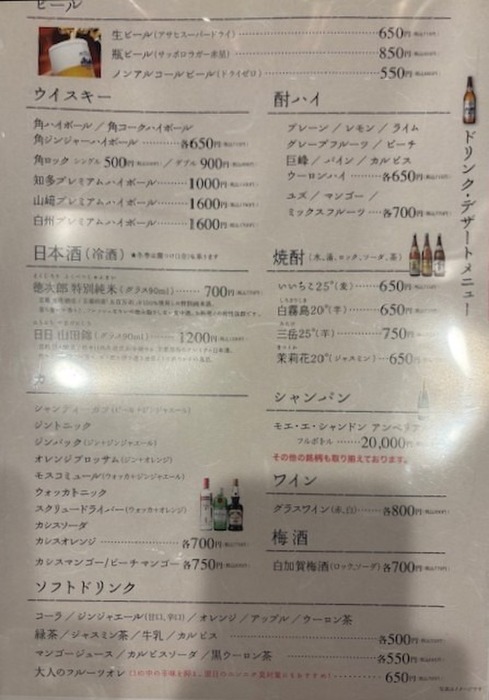 ビール
生ビール(アサヒスーパードライ) 650円
瓶ビール(サッポロラガー赤星) 850円
ノンアルコールビール(ドライゼロ) 550円
ウイスキー
角ハイボール / 角コークハイボール
角ジンジャーハイボール 各650円
角ロック シングル 500円 / ダブル 900円
知多プレミアムハイボール 1000円
山﨑プレミアムハイボール 1600円
白州プレミアムハイボール 1600円
日本酒(冷酒)
徳次郎 特別純米(グラス90ml) 700円
日日 山田錦(グラス90ml) 1200円
カ
シャンディーガフ(ビール+ジンジャエール)
ジントニック
ジンバック(ジン+ジンジャエール)
オレンジブロッサム(ジン+オレンジ)
モスコミュール(ウォッカ+ジンジャエール)
ウォッカトニック
スクリュードライバー(ウォッカ+オレンジ)
カシスソーダ
カシスオレンジ 各700円
カシスマンゴー/ピーチマンゴー 各750円
酎ハイ
プレーン / レモン / ライム
グレープフルーツ / ピーチ
巨峰 / パイン / カルピス
ウーロンハイ 各650円
ユズ / マンゴー /
ミックスフルーツ 各700円
焼酎(水、湯、ロック、ソーダ、茶)
いいちこ25°(麦) 650円
白霧島20°(芋) 650円
三岳25°(芋) 750円
茉莉花20°(ジャスミン) 650円
シャンパン
モエ・エ・シャンドン アンペリアル
フルボトル 20,000円
その他の銘柄も取り揃えております。
ワイン
グラスワイン(赤、白) 各800円
梅酒
白加賀梅酒(ロック、ソーダ) 各700円
ソフトドリンク
コーラ / ジンジャエール(甘口、辛口) / オレンジ / アップル / ウーロン茶
緑茶 / ジャスミン茶 / 牛乳 / カルピス 各500円
マンゴージュース / カルピスソーダ / 黒ウーロン茶 各550円
大人のフルーツオレ 650円
ドリンク・デザートメニュー
写真はイメージです